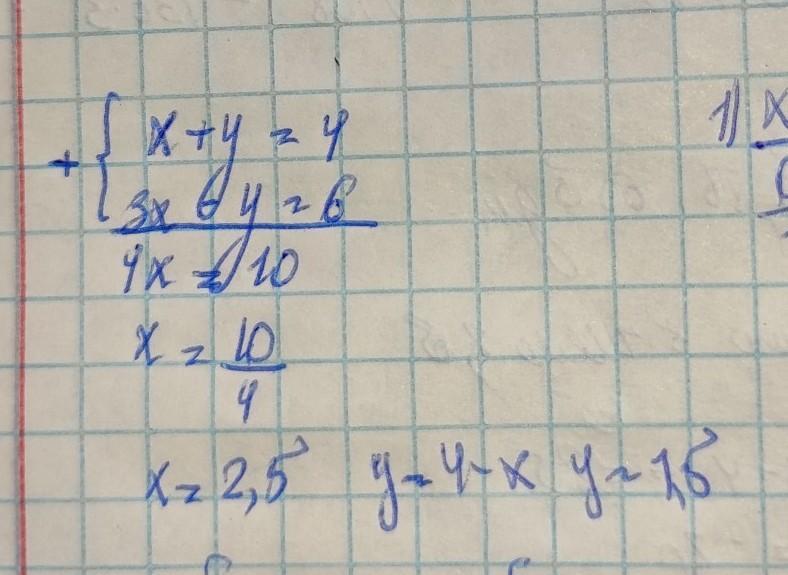 + { x + y = 4
3x - y = 6
4x = 10
x = 10/4
x = 2,5 y = 4 - x y = 1,5
1) x